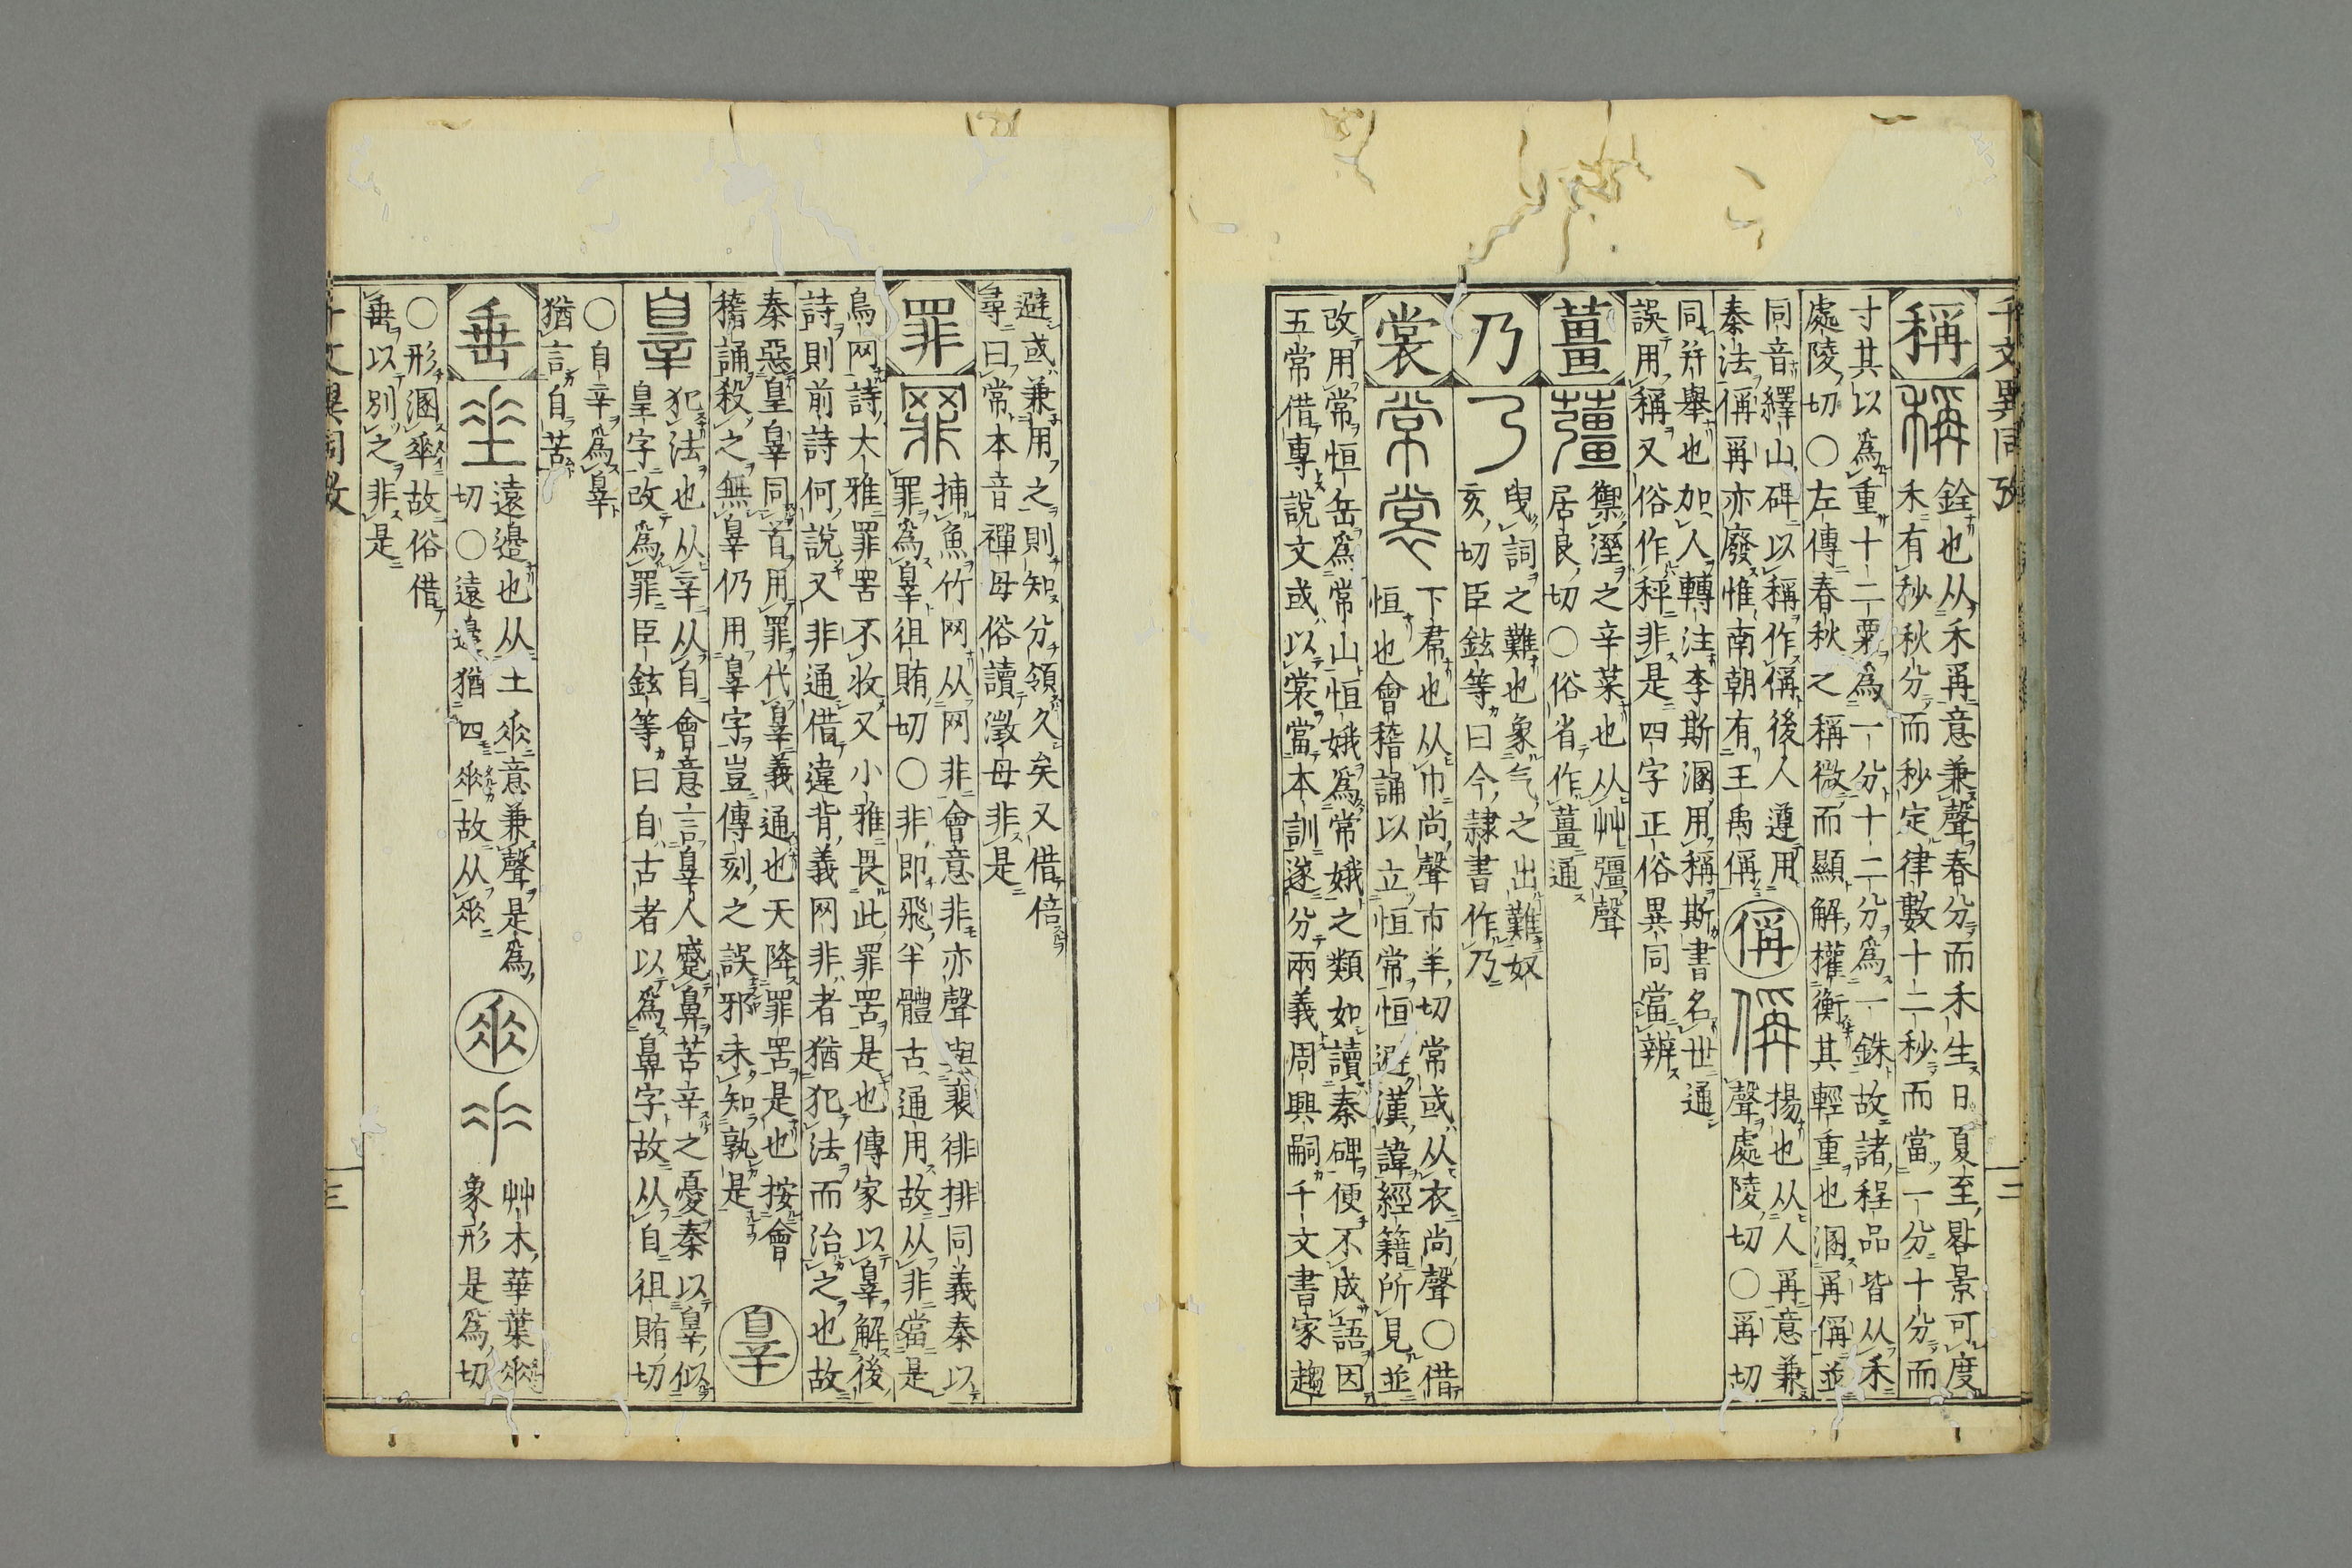 千文異同攷
稱
銓也从禾爯意兼聲春分而禾生日夏至晷景可度
禾有秒秋分而秒定律數十二秒而當一分十分而
寸其以爲重十二粟爲一分十二分爲一銖故諸程品皆从禾
處陵切〇左傳春秋之稱微而顯解權衡其輕重也溷爯偁並
同音繹山碑以稱作偁後人遵用
秦法偁爯亦廢惟南朝有王禹偁
偁
揚也从人爯意兼
聲處陵切〇爯切
同并舉也加人轉注李斯溷用稱斯書名世通
誤用稱又俗作秤非是四字正俗異同當辨
薑
禦溼之辛菜也从艸彊聲
居良切〇俗省作薑通
乃
曳詞之難也象气之出難奴
亥切臣鉉等曰今隸書作乃
裳
常
裳
下帬也从巾尚聲市羊切常或从衣尚聲〇借
恒也會稽誦以立恒常恒避漢諱經籍所見並
改用常恒岳爲常山恒娥爲常娥之類如讀秦碑便不成語因
五常借專說文或以裳當本訓遂分兩義周興嗣千文書家趨
二
避或兼用之則知分領久矣又借倍
尋曰常本音禪母俗讀澂母非是
罪
捕魚竹网从网非會意非亦聲與裴徘排同義秦以
罪爲辠徂賄切〇非即飛半體古通用故从非當是
鳥网詩大雅罪罟不收又小雅畏此罪罟是也傳家以辠解後
詩則前詩何說又非通借違背義网非者猶犯法而治之也故
秦惡皇辠同首用罪代辠義通也天降罪罟是也按會
稽誦殺之無辠仍用辠字豈傳刻之誤邪未知孰是
辠
辠
犯法也从辛从自會意言辠人蹙鼻苦辛之憂秦以辠似
皇字改爲罪臣鉉等曰自古者以爲鼻字故从自徂賄切
〇自辛爲辠
猶言自苦
垂
遠邉也从土𠂹意兼聲是爲
切〇遠邉猶四𠂹故从𠂹
𠂹
艸木華葉𠂹
象形是爲切
〇形溷𠂹故俗借
垂以別之非是
千文異同攷
三